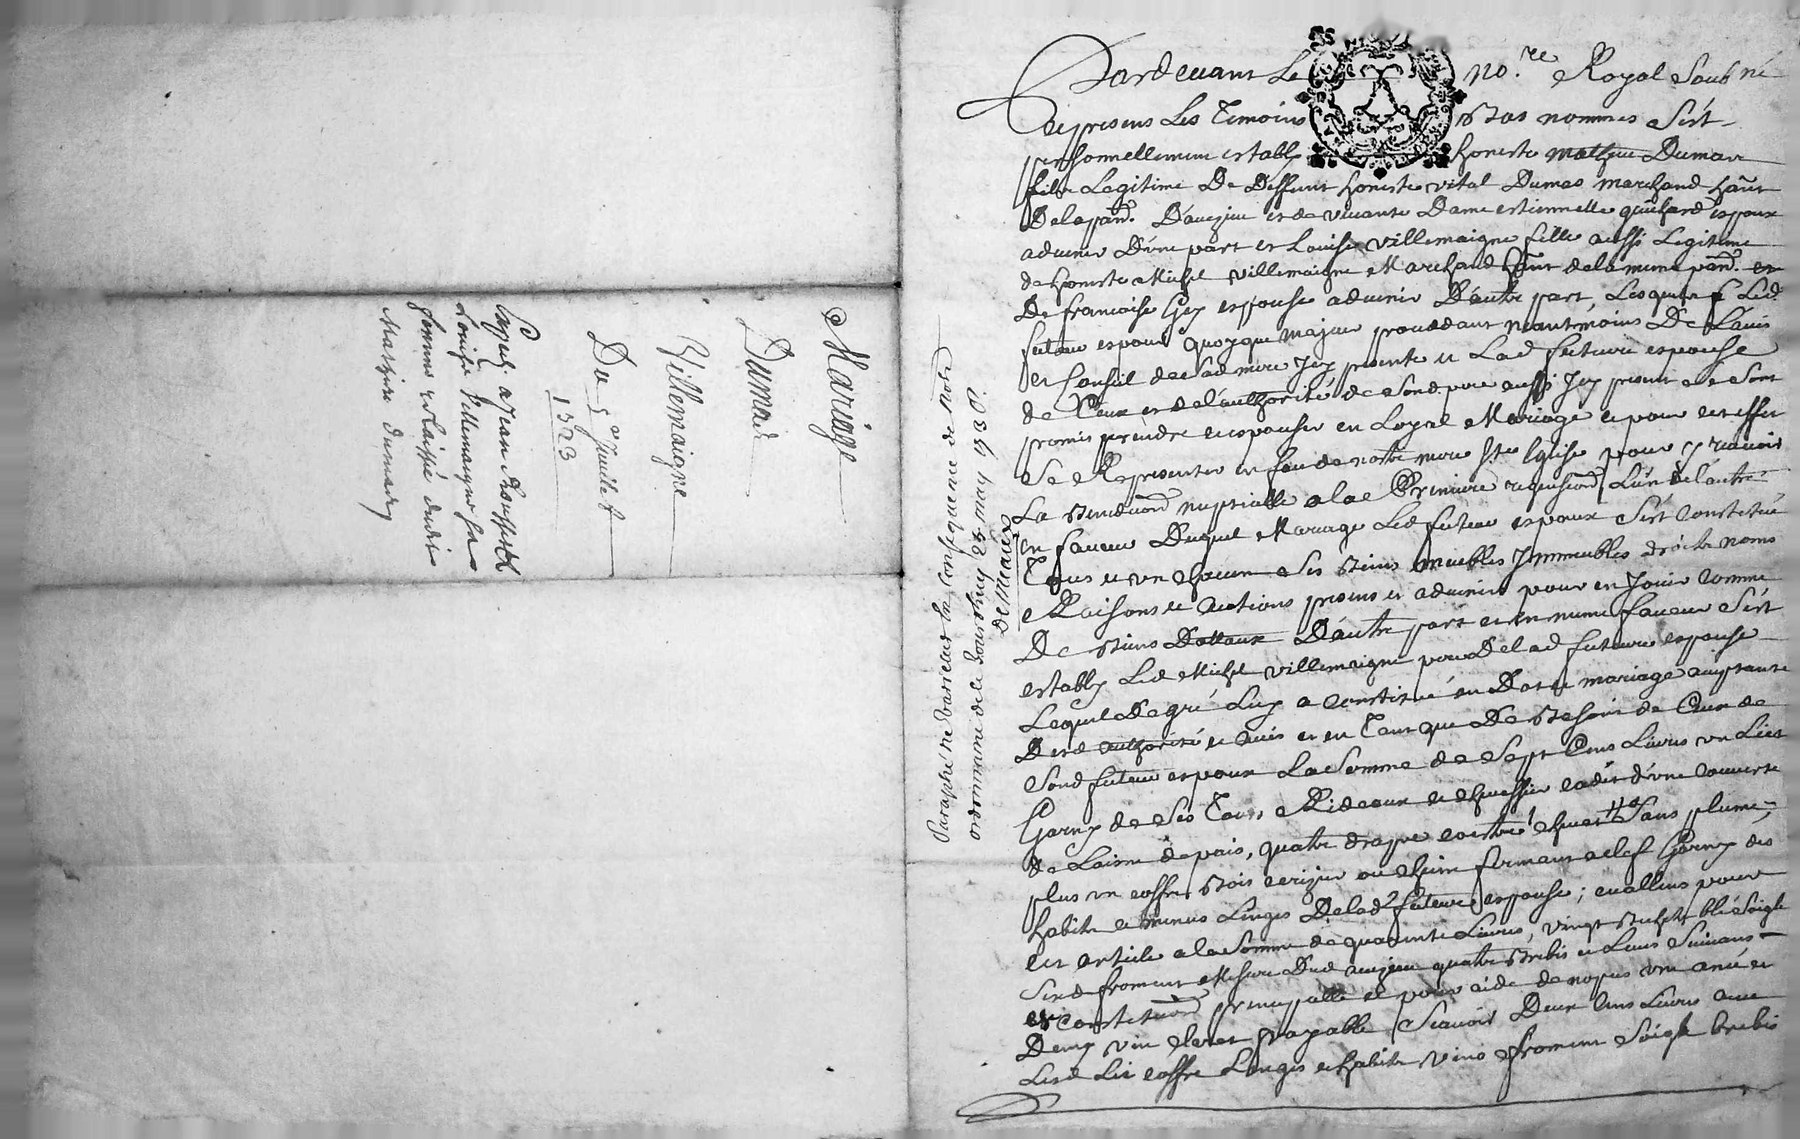 Mariage
Dumas
Villemaigne
Du 5e Juillet
1323
Louise Villemaigne
femme delaissée dudit
Mathieu Dumas
Paraphé ne varietur en consequence de notre
ordonnance de ce jourdhuy 25 may 1730.
Pardevant Le no.re Royal soub né
et presens Les Temoins Bas nommes S'est
personnellement establ honeste mathieu Dumas
fils Legitime De Deffunt honeste vital Dumas marchand hant
De la parr. D'auezieu et de viuante Dame estiennette guichard espoux
aduenir D'vne part et Louise villemaigne fille aussi Legitime
de honeste Michel villemaigne Marchand hant de la meme parr. et
De francoise Gey espouse aduenir D'autre part, Lesquels Led.
futeur espoux quoyque majeur proceddant neantmoins De L'auis
et Conseil de sad mere Jcy presente et Lad future espouse
de L'aux et de l'authorité de sond pere aussi Jcy present ont
promis prendre et espouser en Loyal Mariage et pour cet effet
se Represanter en face de nostre mere Ste Eglise pour y receuoir
La Benediction nuptialle a la Premiere requisition L'un de l'autre
en faueur Duquel Mariage Led futeur espoux S'est Constitué
Tous et vn chacun ses Biens meubles Jmmeubles droits noms
Raisons et Actions presens et aduenirs pour en Jouir Comme
De Biens Dottaux D'autre part et en meme faueur S'est
establ Led Michel villemaigne pere De lad future espouse
Lequel De gré Luy a Constitué en Dot et mariage acceptante
De lad authorité et auis et en Tant que De Besoin de Ceux de
Sond futeur espoux La Somme de Sept Cens Liures vn Lict
Garny de Ses Tours Rideaux et chuessier cadis d'vne Couuerte
de Laine de pais, quatre draps et chuet Sans plume,
plus vn coffre Bois cerizier ou chesne fermant a clef Garny des
habits et menus Linges De lad future espouse; eualluez pour
cet article a la Somme de quarente Liures, vingt Bichets bled Soigle
Six d froment Mesure Dud auezieu quatre Brebis et Leurs Suiuans
et constitution principalle et pour aide de nopces vne anée et
Demy vin Claret payable Scauoir Deux Cens Liures auec
Lesd Lit coffre Linges et habits vins froment Soigle brebis